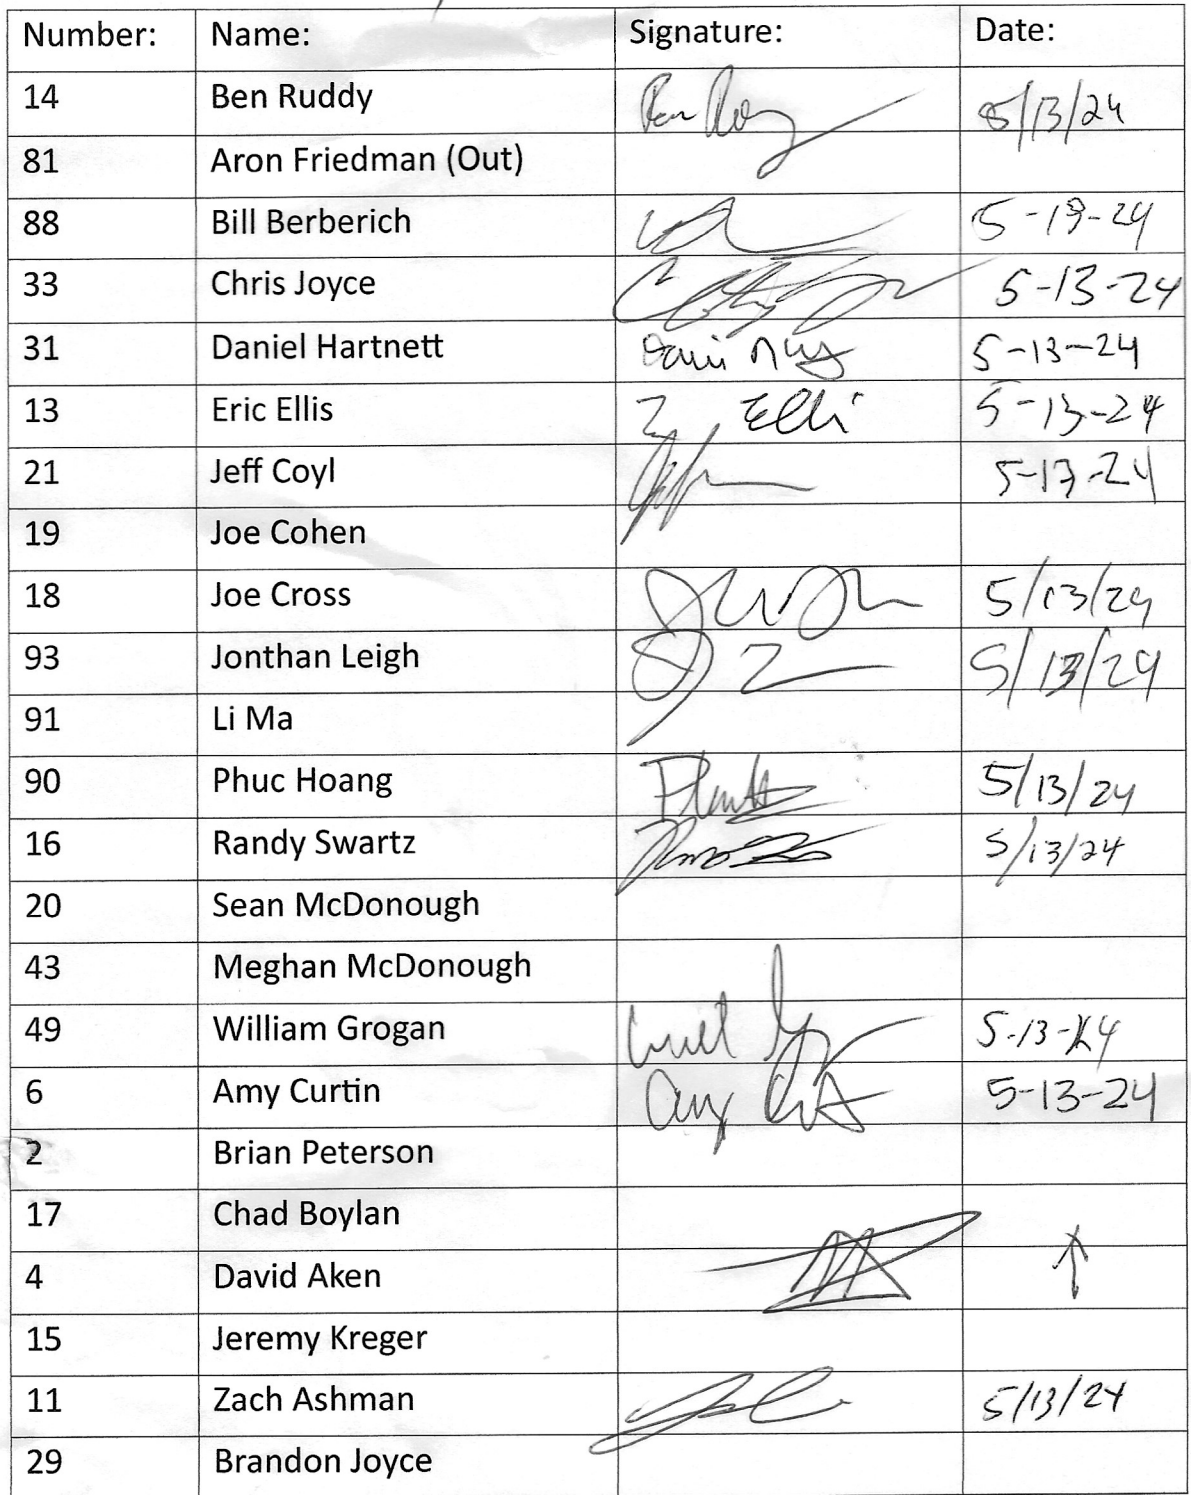 Number: Name: Signature: Date:
14 Ben Ruddy 5/13/24
81 Aron Friedman (Out)
88 Bill Berberich 5-13-24
33 Chris Joyce 5-13-24
31 Daniel Hartnett 5-13-24
13 Eric Ellis Elli 5-13-24
21 Jeff Coyl 5-13-24
19 Joe Cohen
18 Joe Cross 5/13/24
93 Jonthan Leigh 5/13/24
91 Li Ma
90 Phuc Hoang 5/13/24
16 Randy Swartz 5/13/24
20 Sean McDonough
43 Meghan McDonough
49 William Grogan 5-13-24
6 Amy Curtin Amy 5-13-24
2 Brian Peterson
17 Chad Boylan
4 David Aken ↑
15 Jeremy Kreger
11 Zach Ashman 5/13/24
29 Brandon Joyce